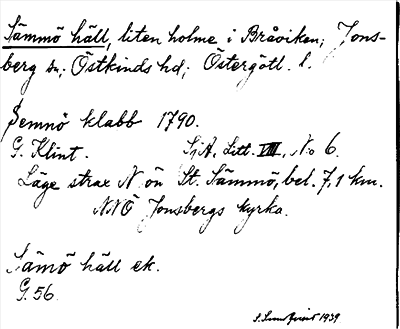 Sämmö häll, liten holme i Bråviken; Jons-
berg sn; Östkinds hd; Östergötl. l.
Semnö klabb 1790.
G. Klint. SjA, Litt. VIII, No 6.
Läge strax N ön St. Sämmö, bel. 7,1 km.
NNÖ Jonsbergs kyrka.
Sämö häll ek.
G. 56.
1939